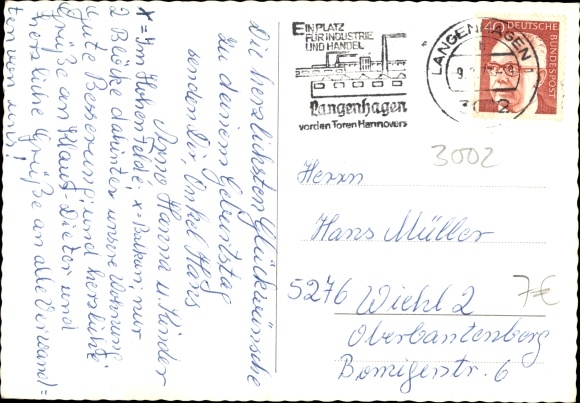 Die herzlichsten Glückwünsche
zu deinem Geburtstag
senden Dir, Onkel Hans
Anno Hanna u. Kinder
x = Im Hohenfelde, x = Balkon, nur
2 Blöcke dahinter unsre Wohnung
Gute Besserung! und herzliche
Grüße an Klaus-Dieter und
herzliche Grüße an alle Verwand=
ten von uns!
EIN PLATZ
FÜR INDUSTRIE
UND HANDEL
Langenhagen
vor den Toren Hannovers
LANGENHAGEN
2
40 DEUTSCHE
BUNDESPOST
3002
Herrn
Hans Müller
5276 Wiehl 2
7€
Oberbantenberg
Bomigerstr. 6